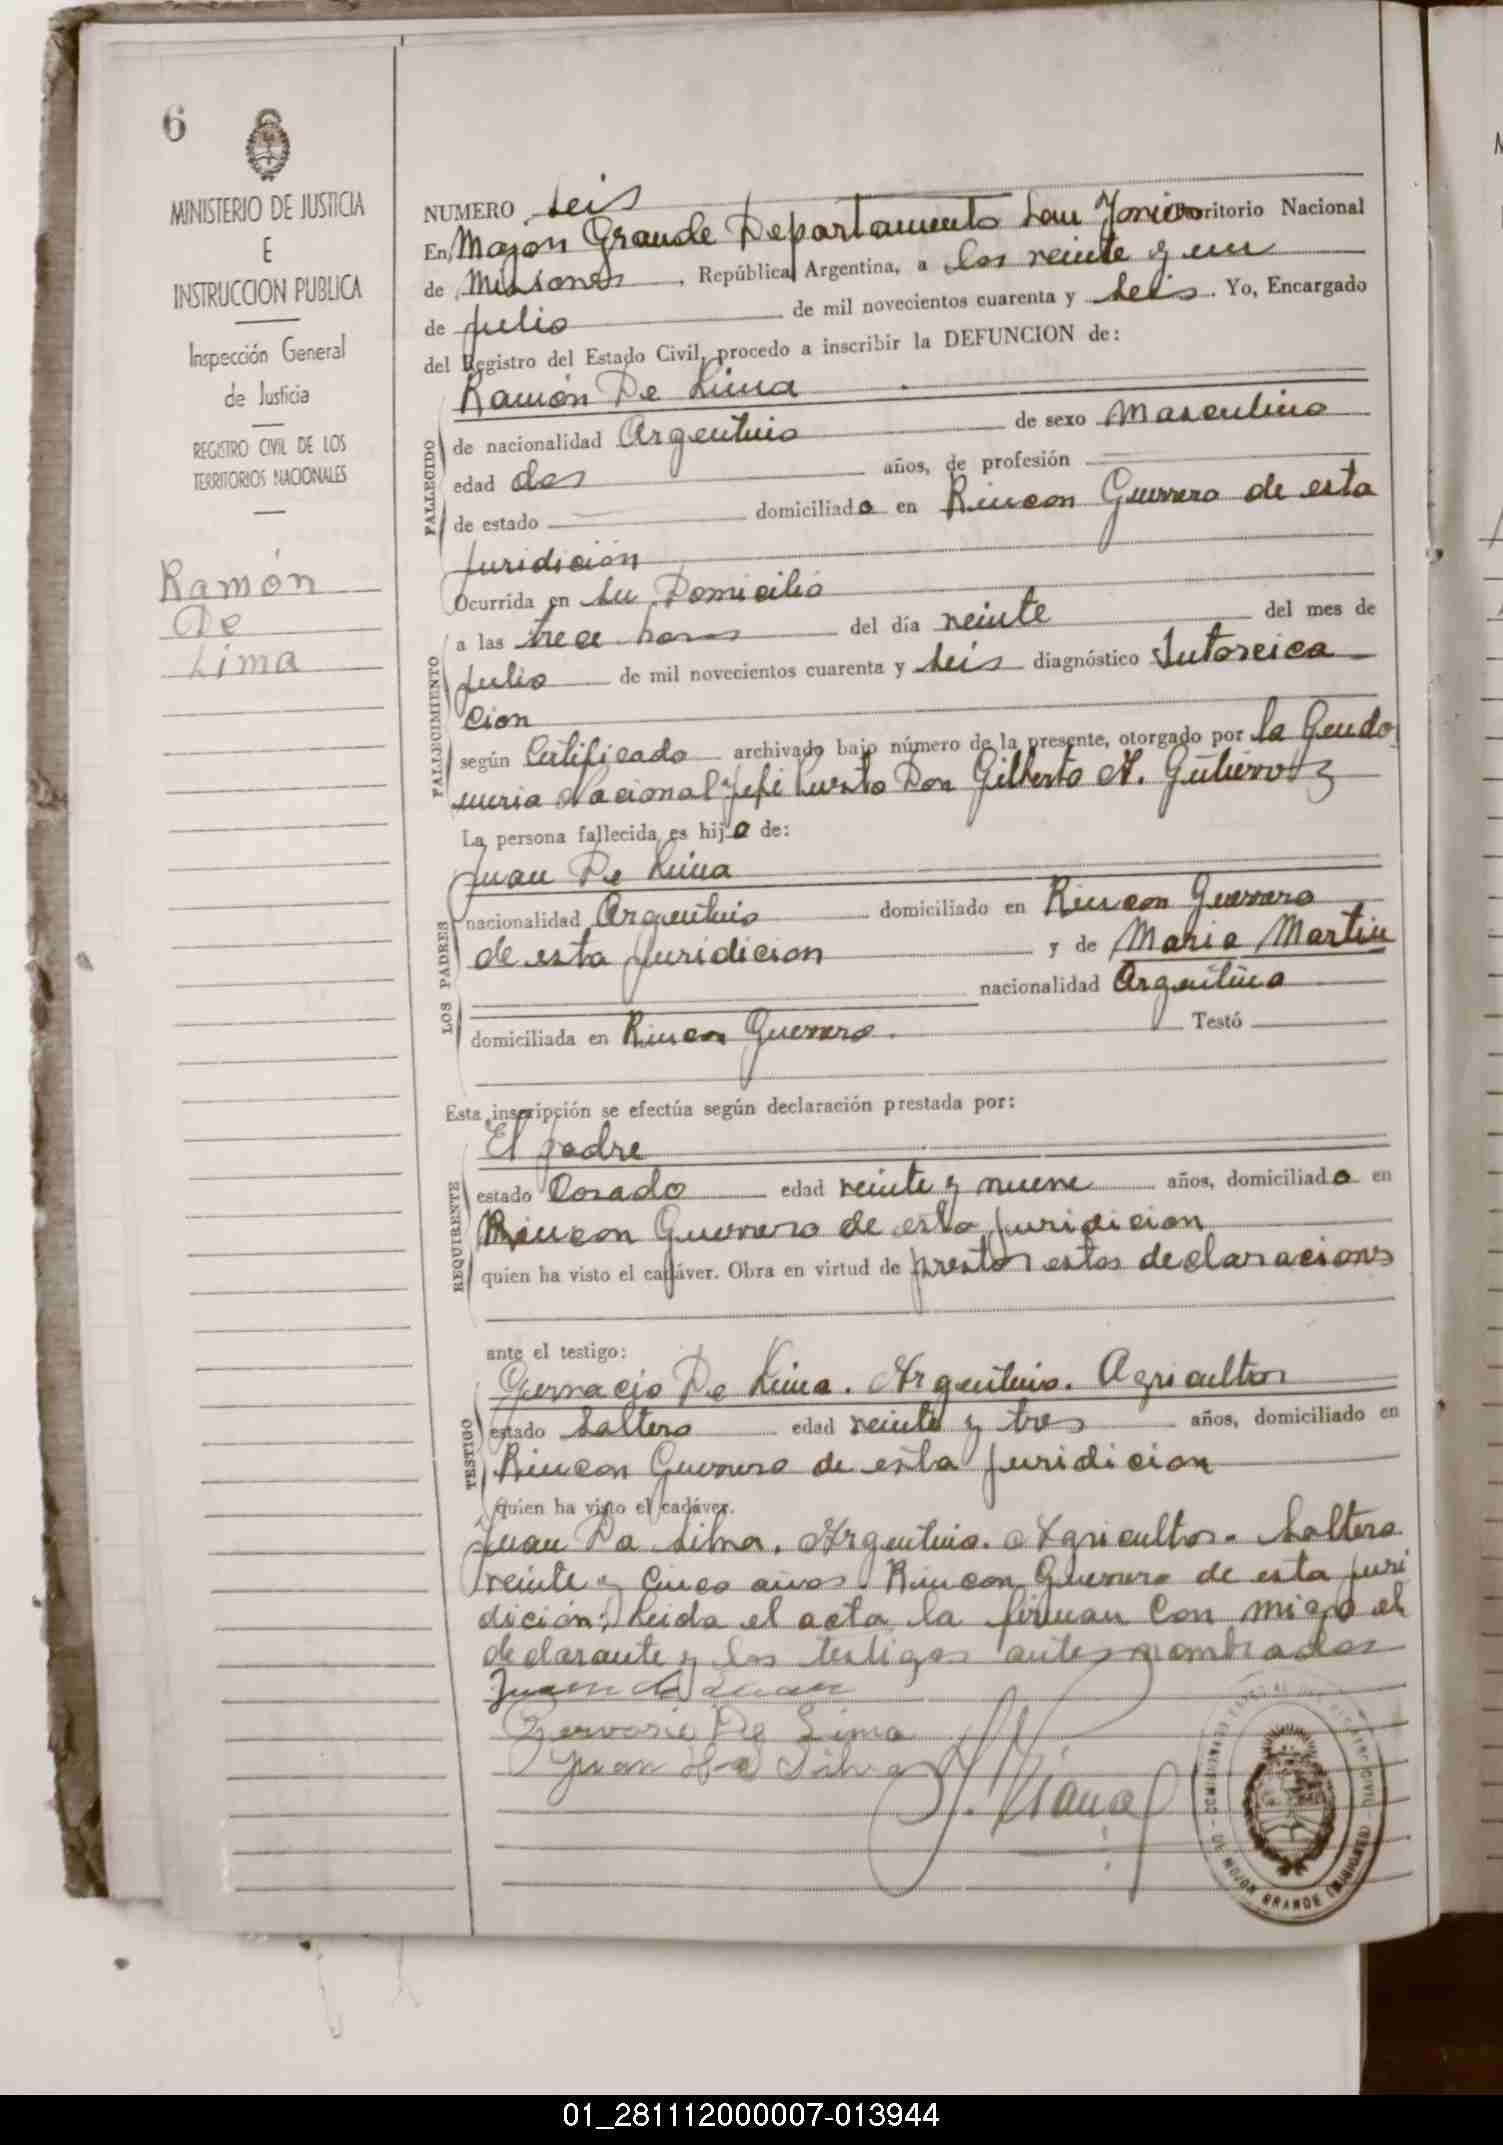 6
MINISTERIO DE JUSTICIA
E
INSTRUCCION PUBLICA
Inspección General
de Justicia
REGISTRO CIVIL DE LOS
TERRITORIOS NACIONALES
Ramón
De
Lima
NUMERO Seis
En Mojón Grande Departamento San Javier Territorio Nacional
de Misiones, República Argentina, a los veinte y un
de Julio de mil novecientos cuarenta y Seis. Yo, Encargado
del Registro del Estado Civil, procedo a inscribir la DEFUNCION de:
Ramón De Lima
FALLECIDO
de nacionalidad Argentino de sexo Masculino
edad dos años, de profesión
de estado domiciliado en Rincon Guerrero de esta
Juridición
FALLECIMIENTO
Ocurrida en Su Domicilio
a las trece horas del día veinte del mes de
Julio de mil novecientos cuarenta y Seis diagnóstico Intoxica
cion
según Certificado archivado bajo número de la presente, otorgado por la Genda
meria Nacional Jefe Puesto Don Gilberto A. Gutierrez
La persona fallecida es hijo de:
LOS PADRES
Juan De Lima
nacionalidad Argentino domiciliado en Rincon Guerrero
de esta juridicion y de Maria Martin
nacionalidad Argentina
domiciliada en Rincon Guerrero. Testó
Esta inscripción se efectúa según declaración prestada por:
El padre
REQUIRENTE
estado Casado edad veinte y nueve años, domiciliado en
Rincon Guerrero de esta juridicion
quien ha visto el cadáver. Obra en virtud de prestar estas declaraciones
ante el testigo:
TESTIGO
De Lima. Argentino. Agricultor
estado Soltero edad veinte y tres años, domiciliado en
Rincon Guerrero de esta juridicion
quien ha visto el cadáver.
Juan Da Silva. Argentino. Agricultor. Soltero
veinte y cinco años. Rincon Guerrero de esta juri
dición; Leida el acta la firman Con migo el
declarante y los testigos antes nombrados
Juan
Gervasio De Lima
Juan Da Silva
DE MOJON GRANDE (MISIONES)
01_281112000007-013944